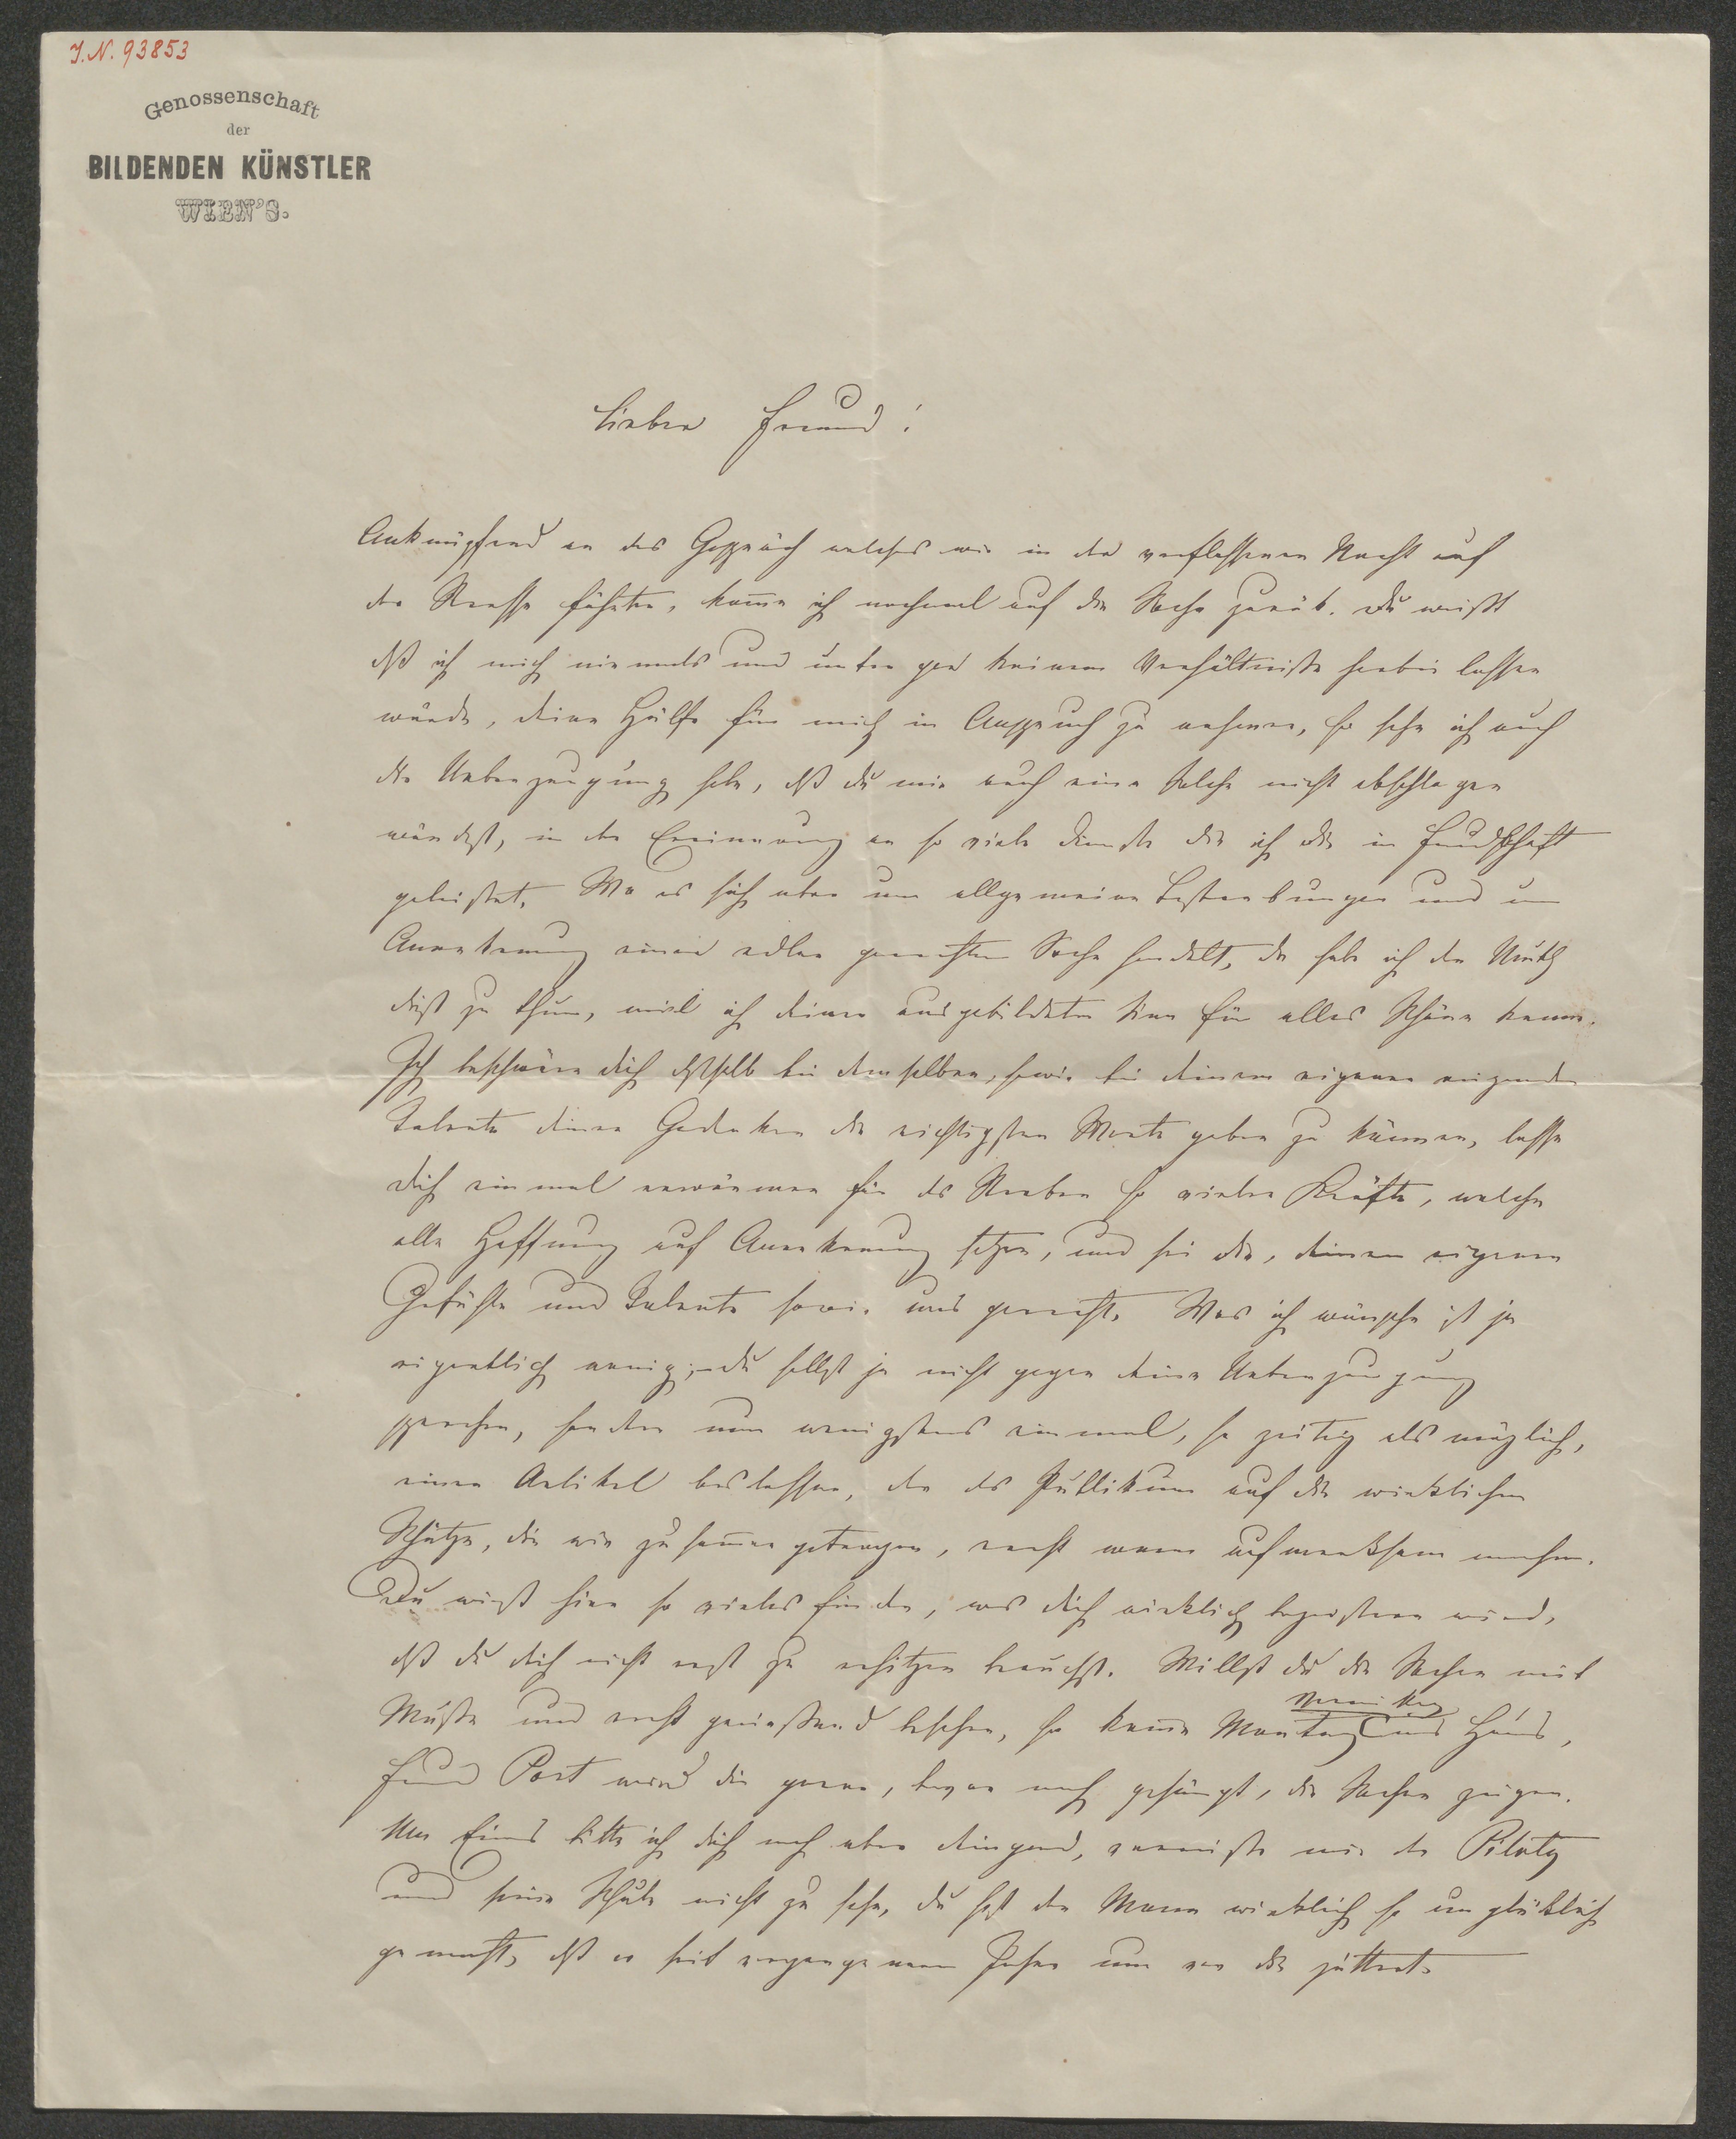 I.N. 93853
Genossenschaft
der
BILDENDEN KÜNSTLER
WIEN'S.
Lieber Freund!
Anknüpfend an das Gespräch welches wir in der verflossenen Nacht auf
der Strasse führten, kom̄e ich nochmal auf die Sache zurük. Du weißt
dß ich mich niemals und unter gar keinem Verhältniße herbei lassen
würde, deine Hülfe für mich in Anspruch zu nehmen, so sehr ich auch
die Ueberzeugung habe, dß du mir auch eine solche nicht abschlagen
würdest, in der Erinnerung an so viele Dienste die ich dir in Freundschaft
geleistet. Wo es sich aber um allgemeine Bestrebungen und um
Anerkennung einer edlen gerechten Sache handelt, da habe ich den Muth
dieß zu thun, weil ich deinen ausgebildeten Sinn für alles Schöne kenne.
Ich beschwöre dich deshalb bei demselben, sowie bei deinem eigenen
Talente deinen Gedanken die richtigsten Worte geben zu können, lasse
dich einmal erwärmen für das Streben so vieler Kräfte, welche
alle Hoffnung auf Anerkennung setzen, und sei dir, deinem eigenen
Gefühle und Talente sowie uns gerecht. Was ich wünsche ist ja
eigentlich wenig; – du sollst ja nicht gegen deine Ueberzeugung
sprechen, sondern nur wenigstens einmal, so zeitig als möglich,
einen Artikel loslassen, der das Publikum auf die wirklichen
Schätze, die wir zusam̄en getragen, recht warm aufmerksam machen.
Du wirst hier so vieles finden, was dich wirklich begeistern wird,
dß du dich nicht erst zu erhitzen brauchst. Willst du die Sachen mit
Muße und recht genießend besehen, so kom̄e Montag Vormittag ins Haus,
Freund Post wird dir gerne, bevor noch gehängt, die Sachen zeigen.
Um Eines bitte ich dich noch aber dringend, verreiße mir den Piloty
und seine Schule nicht zu sehr, du hast den Mann wirklich so unglüklich
gemacht, dß er seit vergangenem Jahre nur vor dir zittert.